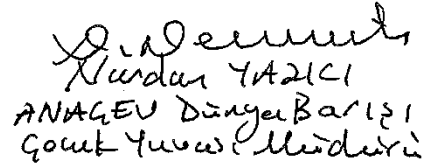 Nurdan YAZICI
ANAGEV Dünya Barışı
Çocuk Yuvası Müdürü